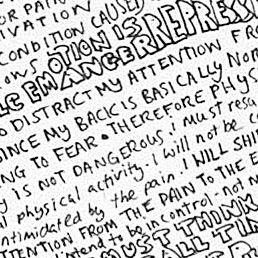 OR PAIN
IVATION
CONDITION CAUSED
OTION IS REPRESS
EM ANGER
O DISTRACT MY ATTENTION FRO
SINCE MY BACK IS BASICALLY NOR
NG TO FEAR • THEREFORE PHYS
IS NOT DANGEROUS. I must resu
l physical activity. I will not be
ntimidated by the pain. I WILL SHI
TTENTION FROM THE PAIN TO THE E
intend to be in control - not
MUST THINK
ALL TI